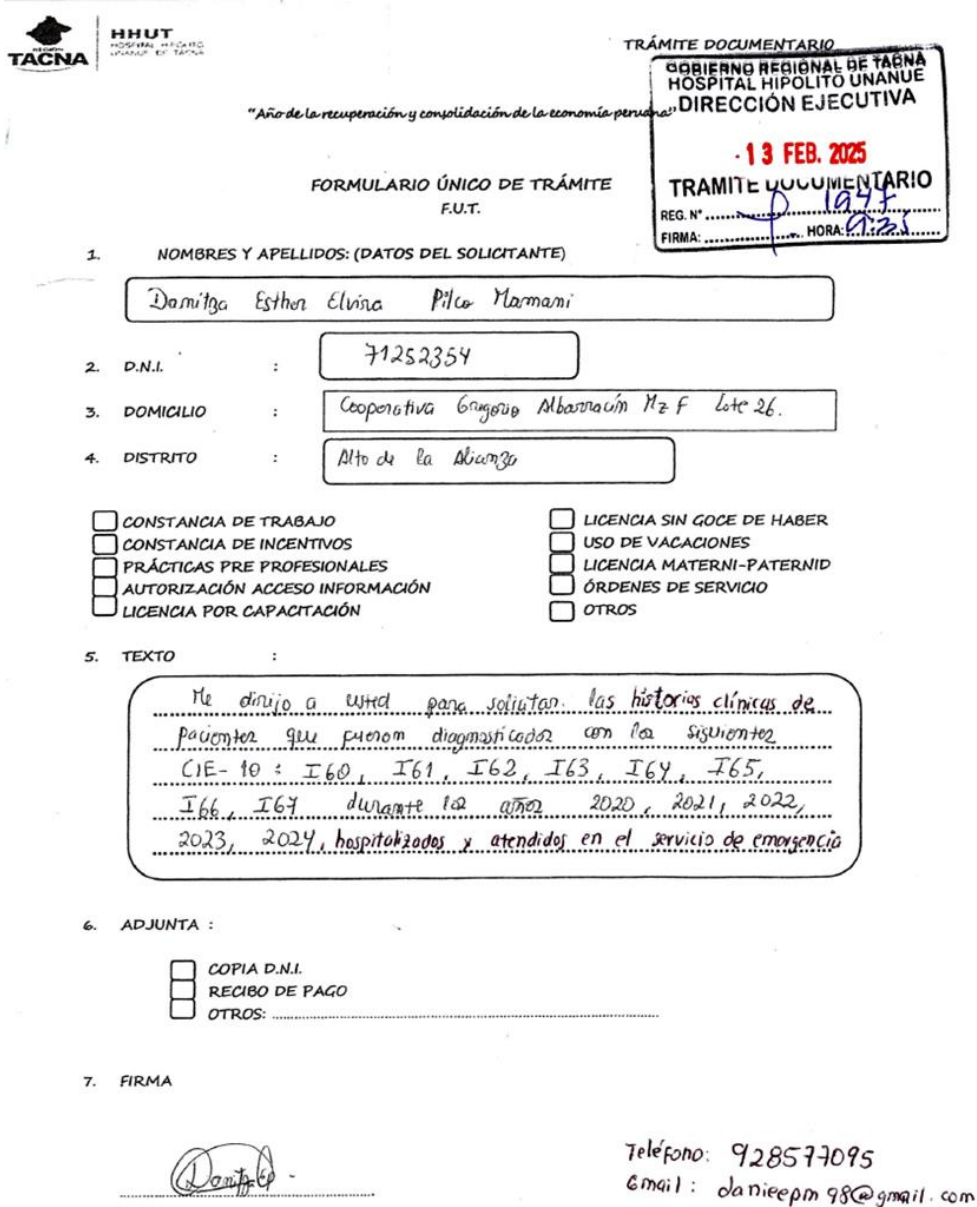 REGIÓN
TACNA
HHUT
HOSPITAL HIPÓLITO
UNANUE DE TACNA
TRÁMITE DOCUMENTARIO
GOBIERNO REGIONAL DE TACNA
HOSPITAL HIPOLITO UNANUE
DIRECCIÓN EJECUTIVA
"Año de la recuperación y consolidación de la economía peruana"
13 FEB. 2025
TRAMITE DOCUMENTARIO
REG. N° 1947
FIRMA: HORA: 9:35
FORMULARIO ÚNICO DE TRÁMITE
F.U.T.
1. NOMBRES Y APELLIDOS: (DATOS DEL SOLICITANTE)
Damitza Esther Elvira Pilco Mamani
2. D.N.I. : 71252354
3. DOMICILIO : Cooperativa Gregorio Albarracín Mz F Lote 26.
4. DISTRITO : Alto de la Alianza
CONSTANCIA DE TRABAJO
CONSTANCIA DE INCENTIVOS
PRÁCTICAS PRE PROFESIONALES
AUTORIZACIÓN ACCESO INFORMACIÓN
LICENCIA POR CAPACITACIÓN
LICENCIA SIN GOCE DE HABER
USO DE VACACIONES
LICENCIA MATERNI-PATERNID
ÓRDENES DE SERVICIO
OTROS
5. TEXTO :
Me dirijo a usted para solicitar las historias clínicas de
pacientes que fueron diagnosticados con los siguientes
CIE-10: I60, I61, I62, I63, I64, I65,
I66, I67 durante los años 2020, 2021, 2022,
2023, 2024, hospitalizados y atendidos en el servicio de emergencia
6. ADJUNTA :
COPIA D.N.I.
RECIBO DE PAGO
OTROS:
7. FIRMA
Teléfono: 928577095
Gmail: danieepm98@gmail.com